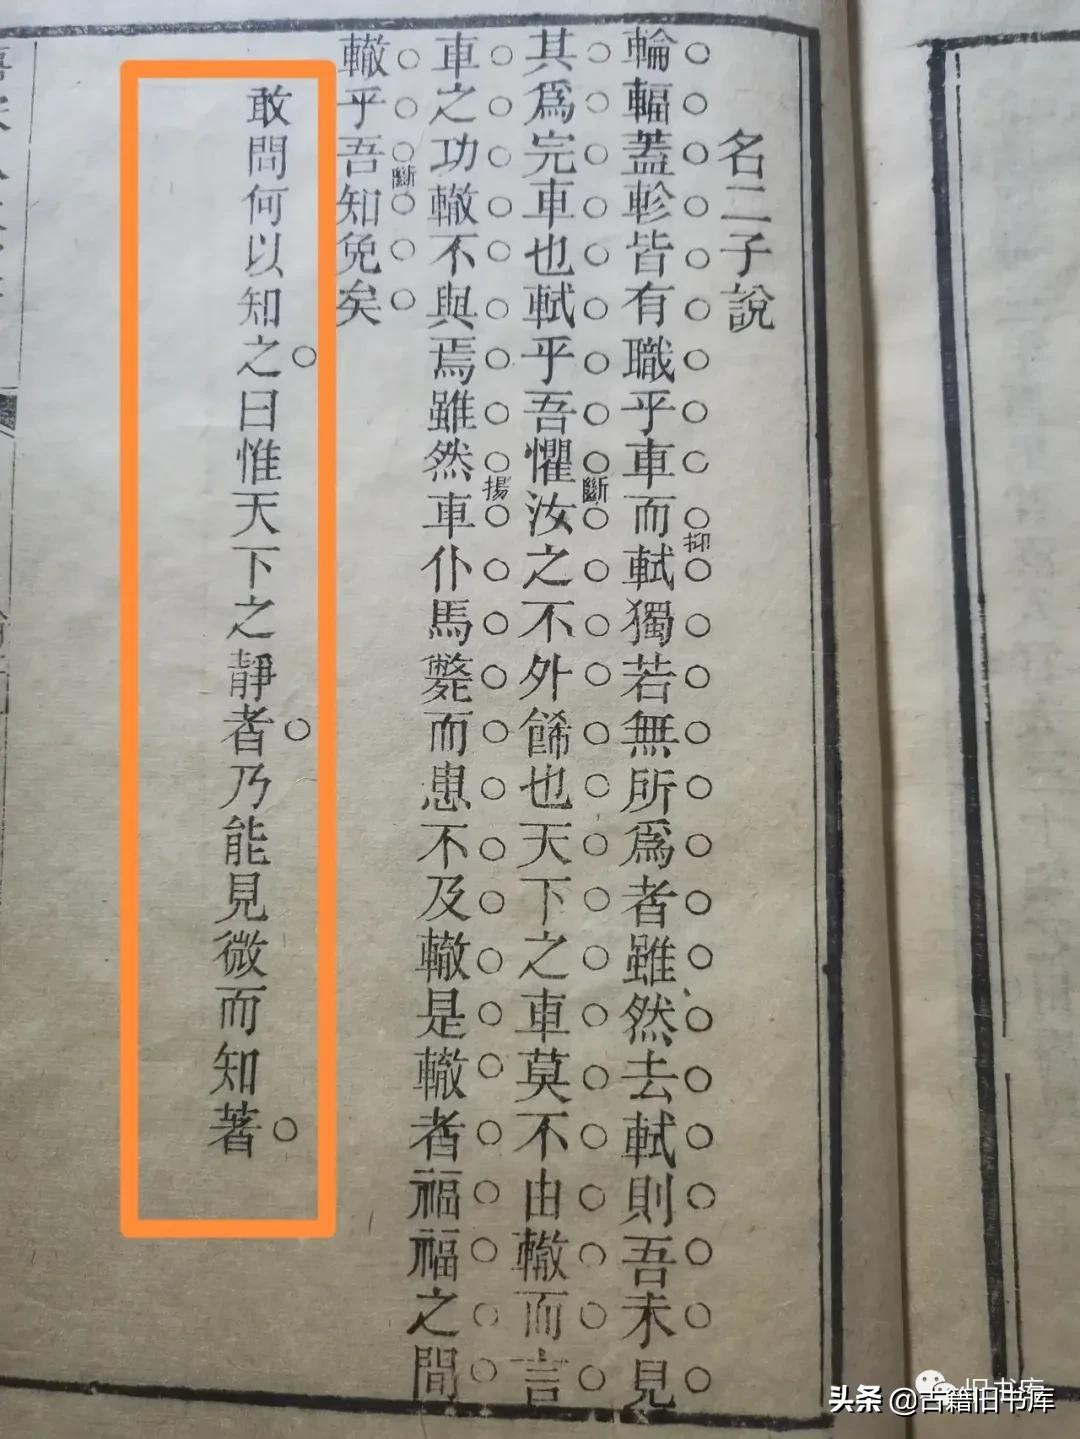 名二子說
輪輻蓋軫皆有職乎車而軾獨若無所爲者雖然去軾則吾未見
抑
其爲完車也軾乎吾懼汝之不外餙也天下之車莫不由轍而言
斷
車之功轍不與焉雖然車仆馬斃而患不及轍是轍者福福之間
揚
轍乎吾知免矣
斷
敢問何以知之曰惟天下之靜者乃能見微而知著
旧书库
头条 @古籍旧书库